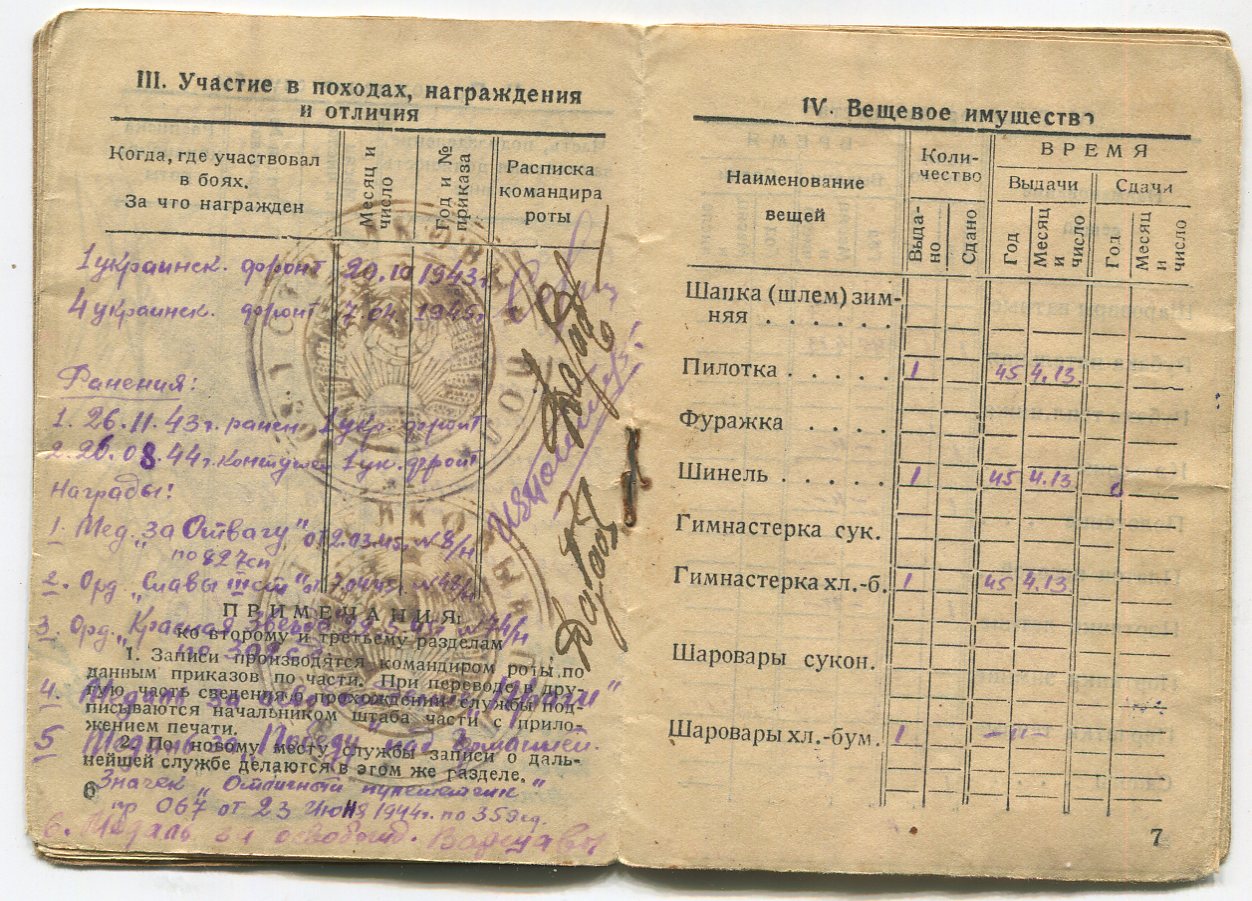 III. Участие в походах, награждения
и отличия
Когда, где участвовал
в боях.
За что награжден
Месяц и
число
Год и №
приказа
Расписка
командира
роты
1 украинск. фронт 20.10 1943г.
4 украинск. фронт 7.04 1945г
Ранения:
1. 26.11.43г. ранен 1 укр. фронт
2. 26.08.44г. контужен 1 ук. фронт
Награды:
1. Мед. "За Отвагу" от 2.03.45г. №8/н
по 827сп
2. Орд. "Славы III ст"
3. Орд. "Красная Звезда"
4. Медаль за освобождение "Праги"
5 Медаль за "Победу" над Германией.
Значек "Отличный пулеметчик"
пр 067 от 23 июня 1944г. по 359сд.
6. Медаль за освобожд. Варшавы
ПРИМЕЧАНИЯ:
ко второму и третьему разделам
1. Записи производятся командиром роты по
данным приказов по части. При переводе в дру-
гую часть сведения о прохождении службы под-
писываются начальником штаба части с прило-
жением печати.
2. По новому месту службы записи о даль-
нейшей службе делаются в этом же разделе.
6
IV. Вещевое имущество
Наименование
вещей
Коли-
чество
ВРЕМЯ
Выдачи
Сдачи
Выда-
но
Сдано
Год
Месяц
и
число
Год
Месяц
и
число
Шапка (шлем) зим-
няя . . . . . .
Пилотка . . . . . 1 45 4.13
Фуражка . . . .
Шинель . . . . . 1 45 4.13
Гимнастерка сук.
Гимнастерка хл.-б. 1 45 4.13
Шаровары сукон.
Шаровары хл.-бум. 1 -"-
7